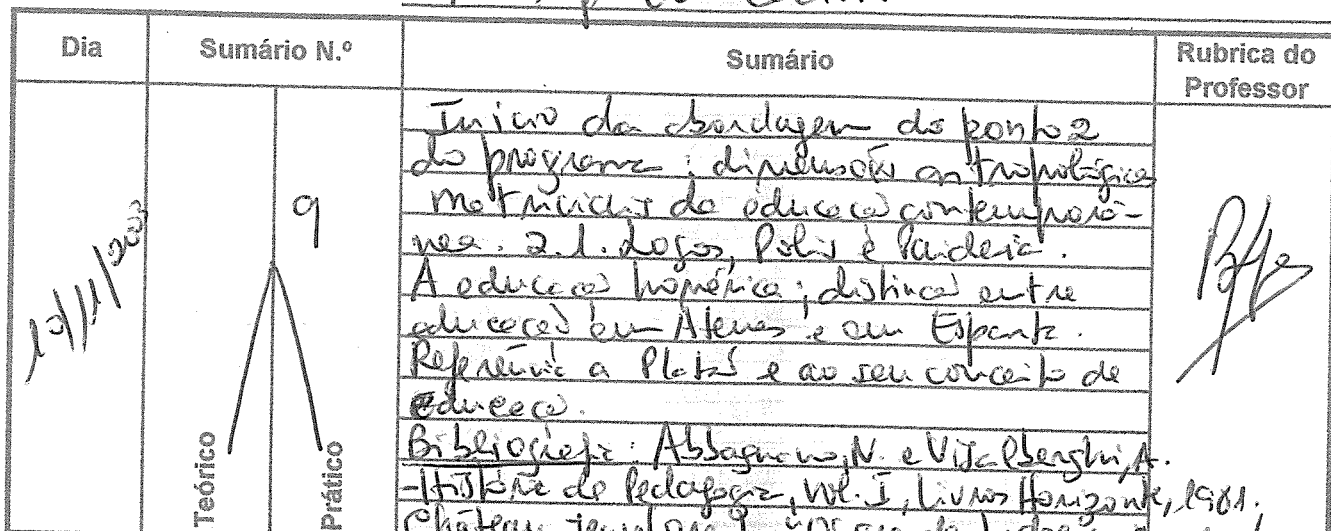 Dia
Sumário N.º
Sumário
Rubrica do
Professor
9
Início da abordagem do ponto 2
do programa: dimensões antropológicas
matriciais da educação contemporâ-
nea. 2.1. Logos, Polis e Paideia.
A educação homérica; distinção entre
educação em Atenas e em Esparta.
Referência a Platão e ao seu conceito de
educação.
Bibliografia: Abbagnano, N. e Visalberghi, A.
-História da Pedagogia, Vol. I, Livros Horizonte, 1981.
Teórico
Prático